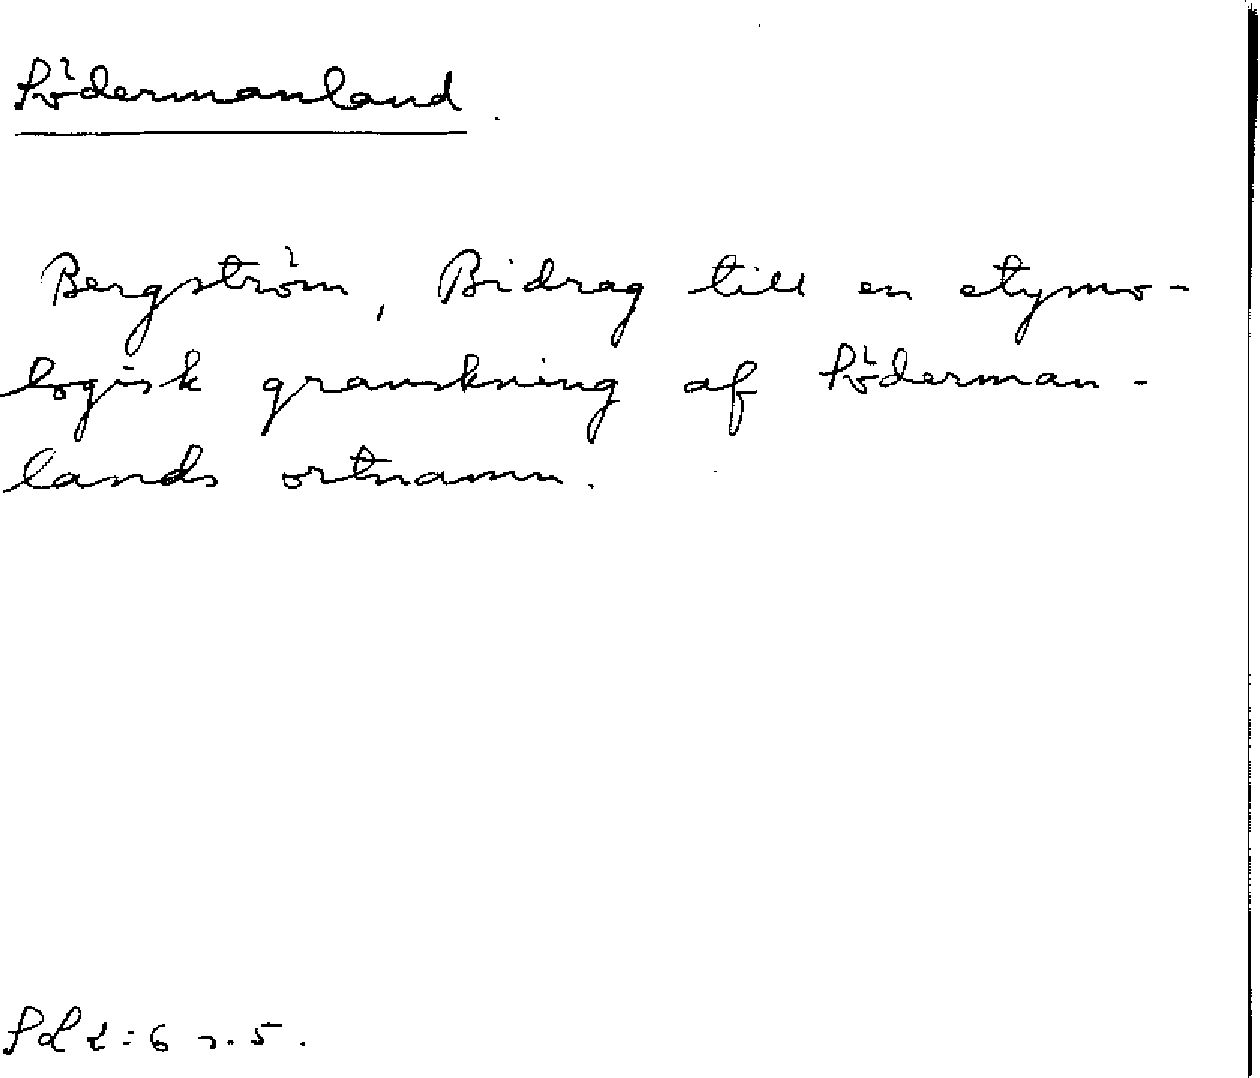 Södermanland.
Bergström, Bidrag till en etymo-
logisk granskning af Söderman-
lands ortnamn.
s. 5.